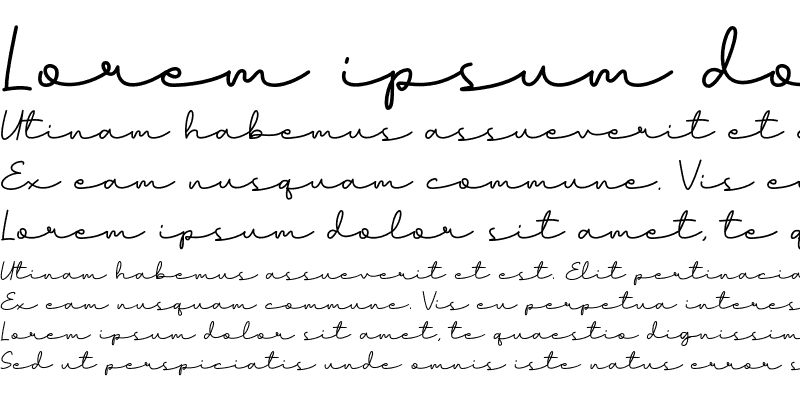 Lorem ipsum do
Utinam habemus assueverit et
Ex eam nusquam commune. Vis eu
Lorem ipsum dolor sit amet, te q
Utinam habemus assueverit et est. Elit pertinacia
Ex eam nusquam commune. Vis eu perpetua interes
Lorem ipsum dolor sit amet, te quaestio dignissim
Sed ut perspiciatis unde omnis iste natus error s